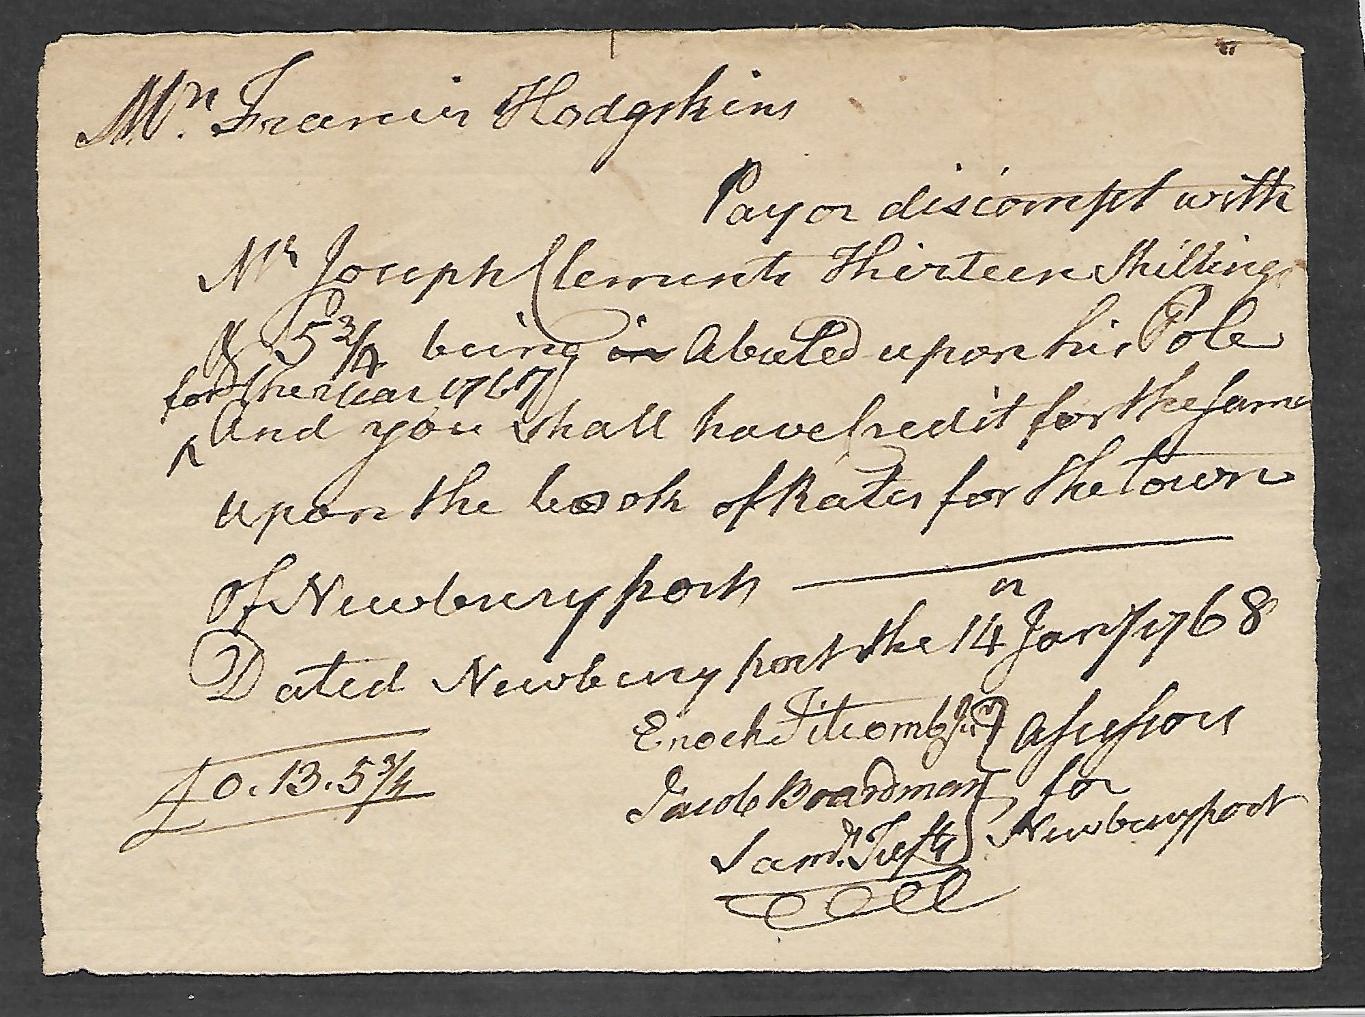 Mr. Francis Hodgskins
Pay or discompt with
Mr Joseph Clements Thirteen Shillings
& 5 3/4 being in Abated upon his Pole
for the year 1767
^ And you shall have Credit for the same
upon the book of Rates for the town
of Newbury port
Dated Newbury port the 14 Janry 1768
Enoch Titcomb Jur } Assessors
Jacob Boardman } for
Saml. Tufts } Newburyport
£0.13.5 3/4